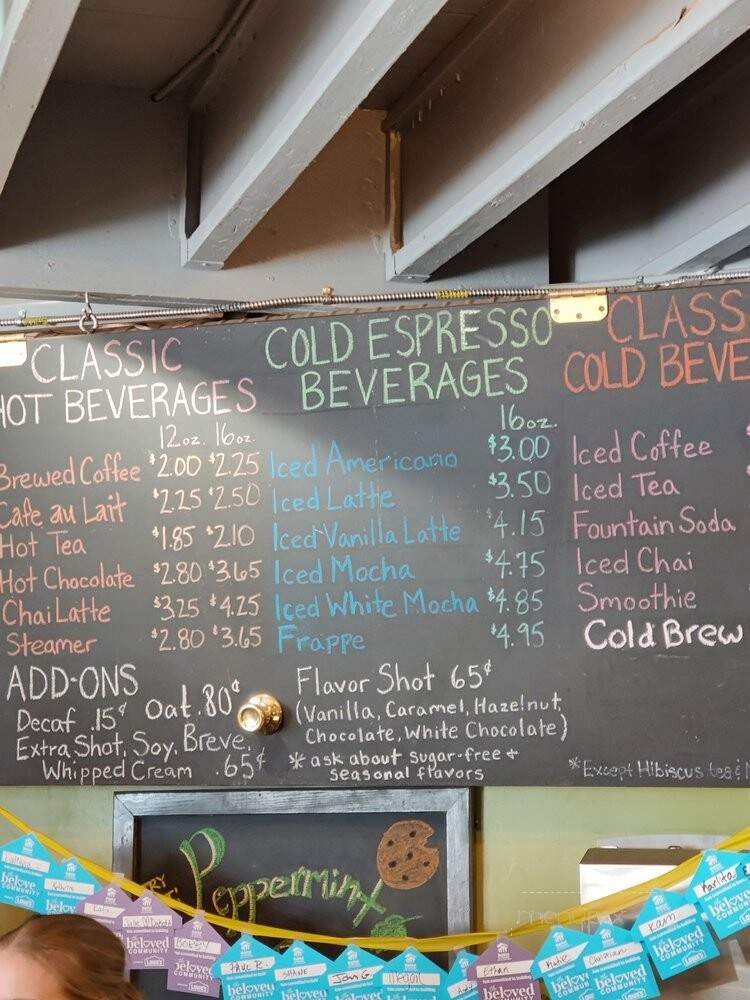 CLASSIC
HOT BEVERAGES
12oz. 16oz.
Brewed Coffee $2.00 $2.25
Cafe au Lait $2.25 $2.50
Hot Tea $1.85 $2.10
Hot Chocolate $2.80 $3.65
Chai Latte $3.25 $4.25
Steamer $2.80 $3.65
ADD-ONS
Decaf .15¢ Oat .80¢
Extra Shot, Soy, Breve,
Whipped Cream .65¢
COLD ESPRESSO
BEVERAGES
16oz.
Iced Americano $3.00
Iced Latte $3.50
Iced Vanilla Latte $4.15
Iced Mocha $4.75
Iced White Mocha $4.85
Frappe $4.95
Flavor Shot 65¢
(Vanilla, Caramel, Hazelnut,
Chocolate, White Chocolate)
*ask about sugar-free +
seasonal flavors
CLASS
COLD BEVE
Iced Coffee
Iced Tea
Fountain Soda
Iced Chai
Smoothie
Cold Brew
*Except Hibiscus tea
Peppermint
beloved
COMMUNITY
LOWE'S
SHANE
Jon G.
Ethan
Kam
Marlita